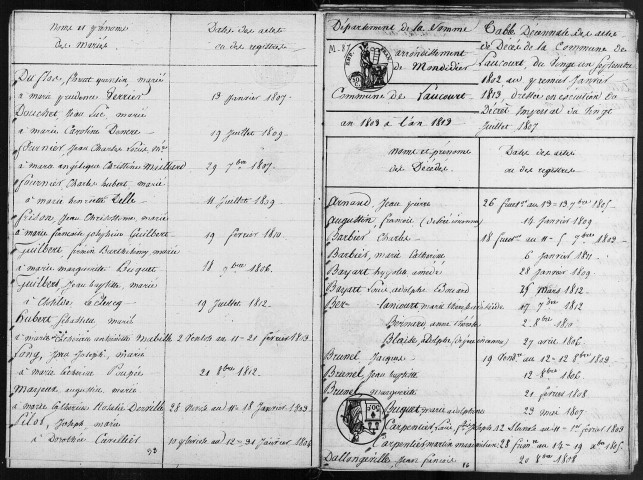 Noms et prénoms
des Mariés
Dates des actes
ou des registres
Duflos, quentin marié
à marie prudence Ferrier 13 janvier 1807
Douchet jean Luc, marié
à marie Caroline Dancre 19 juillet 1809
Fournier jean Charles Louis
à marie angélique Christine Maillard 29 7bre 1807
Fournier Charles hubert marié
à marie henriette Lille 11 juillet 1809
Frison jean Chrisostome, marié
à marie françoise Joséphine Guilbert 19 février 1811
Guilbert firmin Barthélemy, marié
à marie marguerite Huguet 18 9bre 1806
Guilbert jean baptiste, marié
à Clotilde Leclercq 19 juillet 1812
hubert Sébastien marié
à marie antoinette Mabille 2 Ventose an 11 - 21 février 1803
Long, jean Joseph, marié
à marie 21 8bre 1812
Margeux augustin, marié
à marie Catherine Rosalie Domville 28 nivose an 11 - 18 janvier 1803
Pilot, joseph, marié
à Dorothée Cavillier 10 pluviose an 12 - 31 janvier 1804
Département de la Somme
M. 87
arrondissement
de Mondidier
Commune de Laucourt
an 1803 à l'an 1813
Table Décennale des actes
de Décès de la Commune de
Laucourt, du Vingt un Septembre
1802 au premier janvier
1813 dressée en exécution du
Décret Impérial du Vingt
juillet 1807
Noms et prénoms
des Décédés
Dates des actes
ou des registres
Arnaud, jean pierre 26 fruct. an 13 - 13 7bre 1805
Augustin françois 14 janvier 1809
Barbier Charles 18 fruct. an 11 - 5 7bre 1803
Barbier marie Catherine 6 janvier 1811
Bayart hypolite aimée 28 janvier 1809
Bayart Louis adolphe Edouard 25 mars 1812
Ber-lancourt marie 17 7bre 1812
Bernard, anne 2 8bre
Blaise adolphe 27 avril 1806
Brunel jacques 19 Vend. an 12 - 12 8bre 1803
Brunel jean baptiste 12 8bre 1806
Brunel marguerite 21 février 1808
Buquet marie adelphine 23 mai 1807
Carpentier Louis joseph 12 pluviose an 11 - 1er février 1803
Carpentier martin maximilien 28 frim. an 14 - 19 xbre 1805
Dallongeville jean françois 20 8bre 1808
16